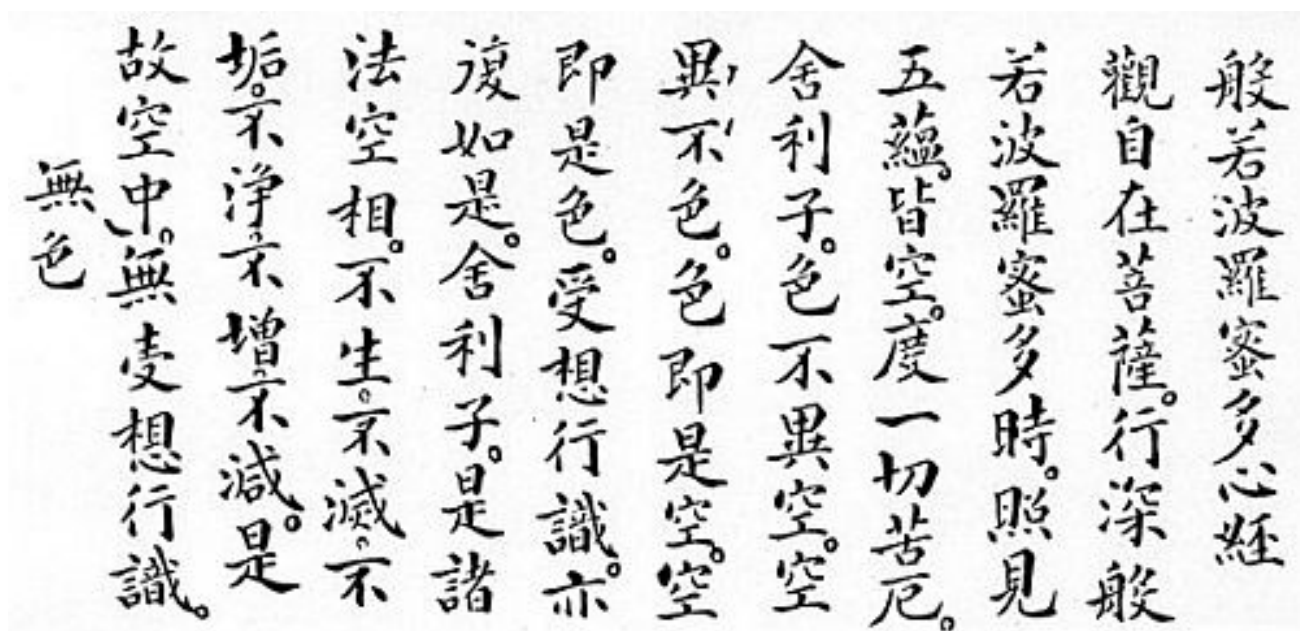 般若波羅蜜多心経
觀自在菩薩。行深般
若波羅蜜多時。照見
五蘊。皆空。度一切苦厄。
舍利子。色不異空。空
異不色。色即是空。空
即是色。受想行識。亦
復如是。舍利子。是諸
法空相。不生。不滅。不
垢。不浄。不增。不減。是
故空中。無受想行識。
無色